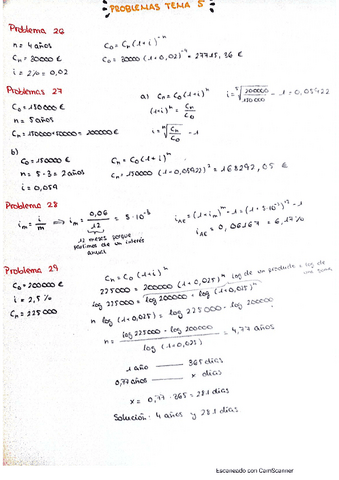 PROBLEMAS TEMA 5
Problema 26
n = 4 años
Cn = 30000 €
i = 2% = 0,02
C0 = Cn (1+i)^-n
C0 = 30000 (1+0,02)^-4 = 27715,36 €
Problemas 27
C0 = 150000 €
n = 5 años
Cn = 150000+50000 = 200000 €
a) Cn = C0 (1+i)^n
(1+i)^n = Cn/C0
i = ⁿ√(Cn/C0) - 1
i = ⁵√(200000/150000) - 1 = 0,05922
b)
C0 = 150000 €
n = 5-3 = 2 años
i = 0,059
Cn = C0 (1+i)^n
Cn = 150000 (1+0,05922)^2 = 168292,05 €
Problema 28
im = i/m ⟹ im = 0,06/12 = 5·10^-3
12 meses porque
partimos de un interés
anual
iAE = (1+im)^m - 1 = (1+5·10^-3)^12 - 1
iAE = 0,06167 = 6,17%
Problema 29
C0 = 200000 €
i = 2,5%
Cn = 225000
Cn = C0 (1+i)^n
225000 = 200000 (1+0,025)^n
log de un producto = log de
una suma
log 225000 = log 200000 + log (1+0,025)^n
n log (1+0,025) = log 225000 - log 200000
n = (log 225000 - log 200000) / log (1+0,025) = 4,77 años
1 año —— 365 días
0,77 años —— x días
x = 0,77 · 365 = 281 días
Solución: 4 años y 281 días.
Escaneado con CamScanner